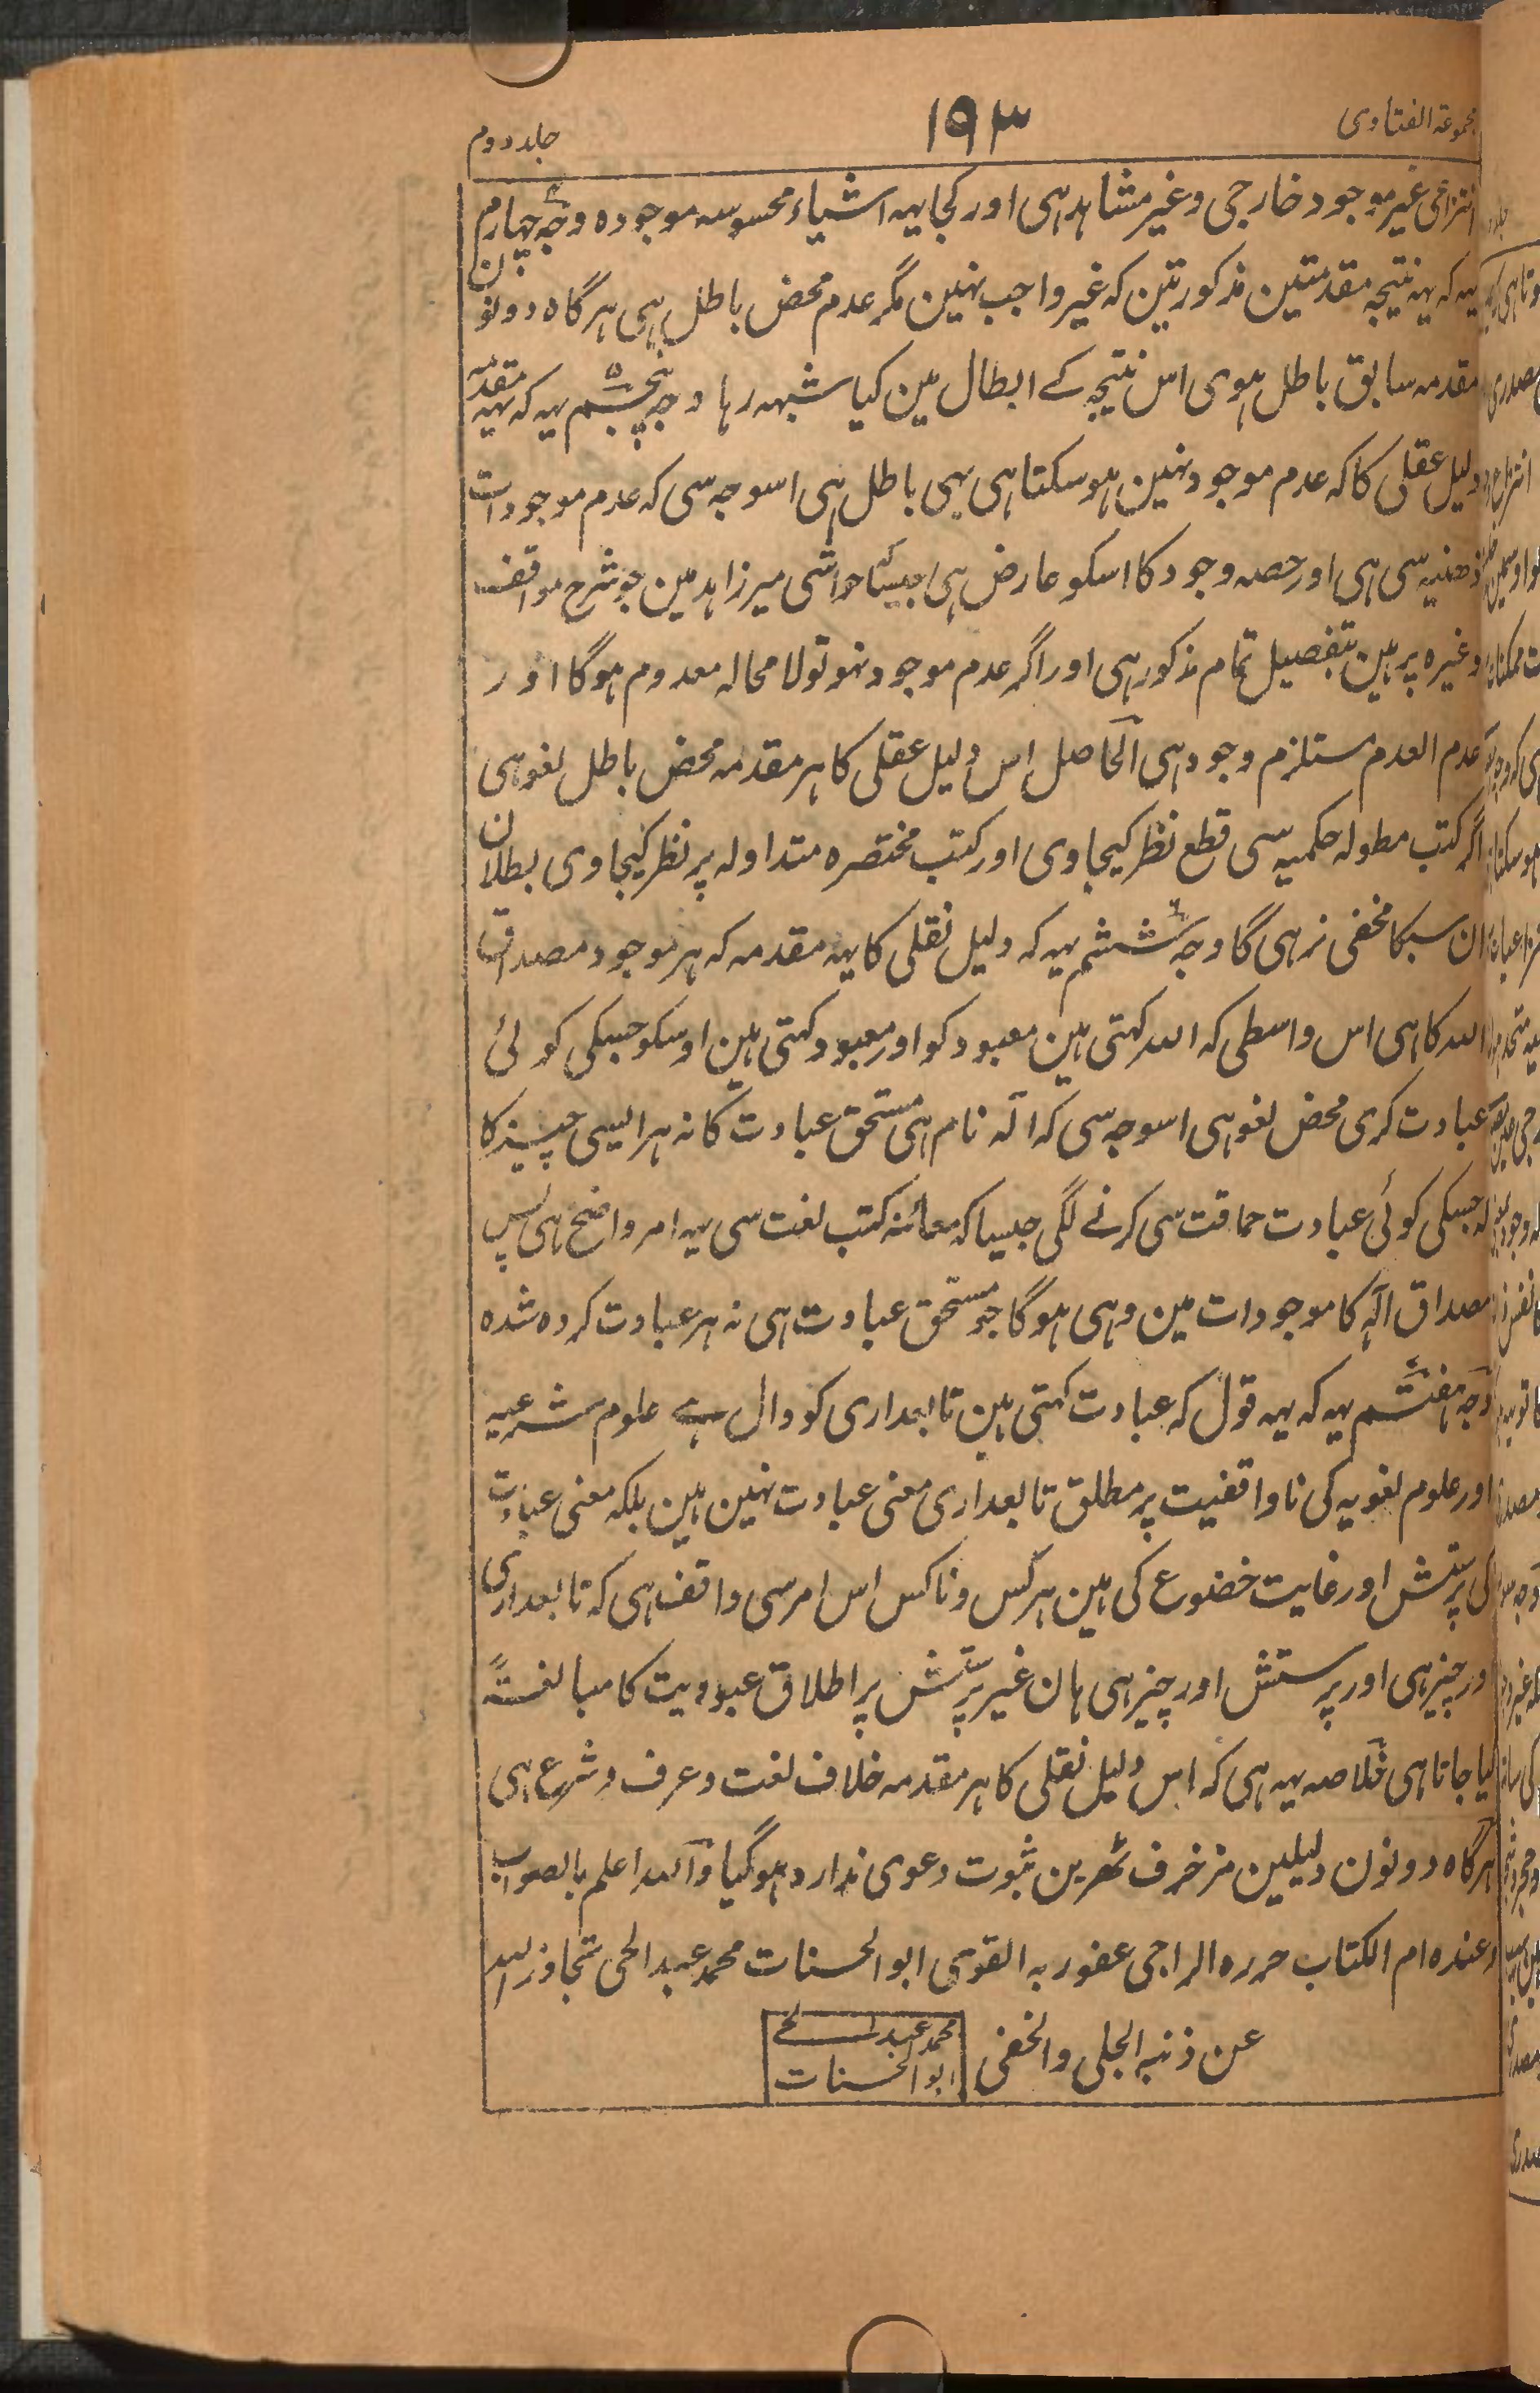 مجموعۃ الفتاوی
۱۹۳
جلد دوم
انتزاعی غیر موجود خارجی وغیر مشاہد ہی اور کجا یہہ اشیاء محسوسہ موجودہ وجہ چہارم
یہہ کہ یہہ نتیجہ مقدمتین مذکورتین کہ غیر واجب نہین مگر عدم محض باطل ہی ہرگاہ دونون
مقدمہ سابق باطل ہوی اس نتیجہ کے ابطال مین کیا شبہہ رہا وجہ پنجسم یہہ کہ یہہ مقدمہ
دلیل عقلی کا کہ عدم موجود نہین ہوسکتا ہی بہی باطل ہی اسوجہ سی کہ عدم موجودات
ذہنیہ سی ہی اور حصہ وجود کا اسکو عارض ہی جیسا حواشی میرزاہد مین جو شرح مواقف
وغیرہ پر ہین بتفصیل تمام مذکور ہی اور اگر عدم موجود نہو تو لا محالہ معدوم ہوگا اور
عدم العدم مستلزم وجود ہی الحاصل اس دلیل عقلی کا ہر مقدمہ محض باطل لغو ہی
اگر کتب مطولہ حکمیہ سی قطع نظر کیجاوی اور کتب مختصرہ متداولہ پر نظر کیجاوی بطلان
ان سبکا مخفی نرہی گا وجہ ششم یہہ کہ دلیل نقلی کا یہہ مقدمہ کہ ہر موجود مصداق
الہ کا ہی اس واسطی کہ الہ کہتی ہین معبود کو اور معبود کہتی ہین اوسکو جسکی کوئی
عبادت کری محض لغو ہی اسوجہ سی کہ الہ نام ہی مستحق عبادت کا نہ ہر ایسی چیز کا
کہ جسکی کوئی عبادت حماقت سی کرنے لگی جیسا کہ معائنہ کتب لغت سی یہہ امر واضح ہی پس
مصداق الہ کا موجودات مین وہی ہوگا جو مستحق عبادت ہی نہ ہر عبادت کردہ شدہ
وجہ ہفتسم یہہ کہ یہہ قول کہ عبادت کہتی ہین تابعداری کو دال ہے علوم شرعیہ
اور علوم لغویہ کی ناواقفیت پر مطلق تابعداری معنی عبادت نہین ہین بلکہ معنی عبادت
کی پرستش اور غایت خضوع کی ہین ہرکس وناکس اس امر سی واقف ہی کہ تابعداری
اور چیز ہی اور پرستش اور چیز ہی ہان غیر پرستش پر اطلاق عبودیت کا مبالغتہً
کیا جاتا ہی خلاصہ یہہ ہی کہ اس دلیل نقلی کا ہر مقدمہ خلاف لغت وعرف وشرع ہی
ہرگاہ دونون دلیلین مزخرف ٹھرین ثبوت دعوی ندارد ہوگیا واللہ اعلم بالصواب
وعندہ ام الکتاب حررہ الراجی عفو ربہ القوی ابو الحسنات محمد عبد الحی تجاوز اللہ
عن ذنبہ الجلی والخفی
محمد عبد الحے
ابو الحسنات